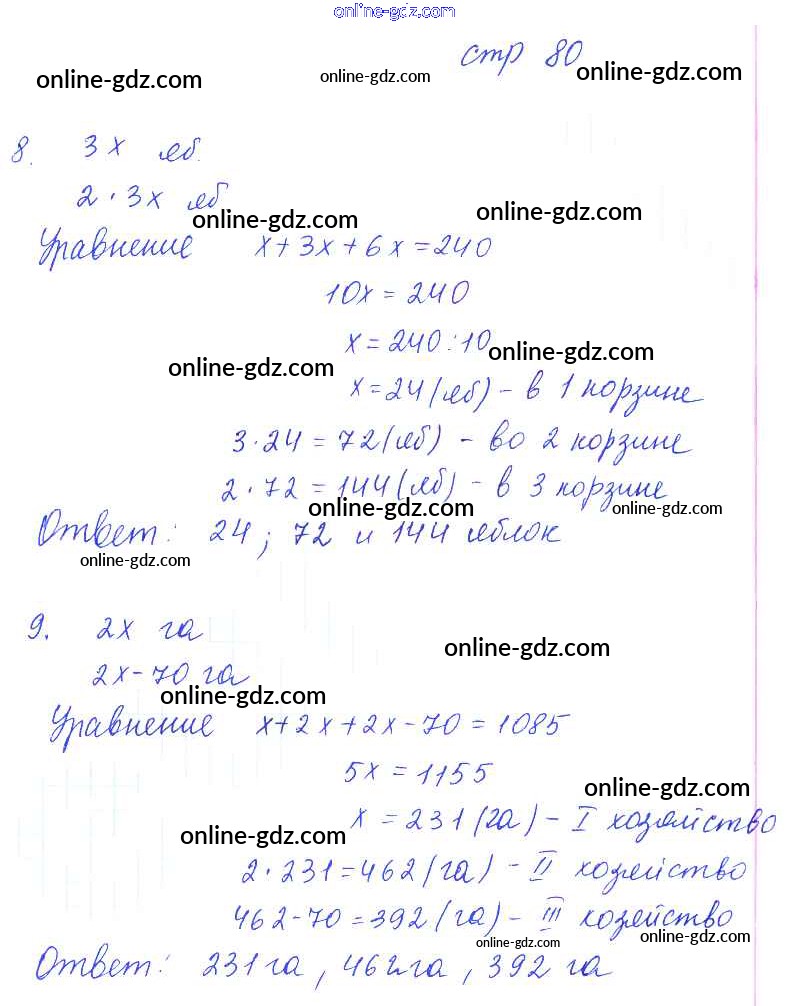 online-gdz.com
стр 80
online-gdz.com online-gdz.com online-gdz.com
8. 3х яб.
2 · 3х яб
online-gdz.com online-gdz.com
Уравнение х+3х+6х=240
10х=240
х=240:10
online-gdz.com online-gdz.com
х=24(яб) - в 1 корзине
3·24=72(яб) - во 2 корзине
2·72=144(яб) - в 3 корзине
online-gdz.com online-gdz.com
Ответ: 24; 72 и 144 яблок
online-gdz.com
9. 2х га
online-gdz.com
2х-70 га
online-gdz.com
Уравнение х+2х+2х-70=1085
5х=1155
online-gdz.com
х=231(га) - I хозяйство
online-gdz.com
2·231=462(га) - II хозяйство
462-70=392(га) - III хозяйство
online-gdz.com online-gdz.com
Ответ: 231га, 462га, 392 га